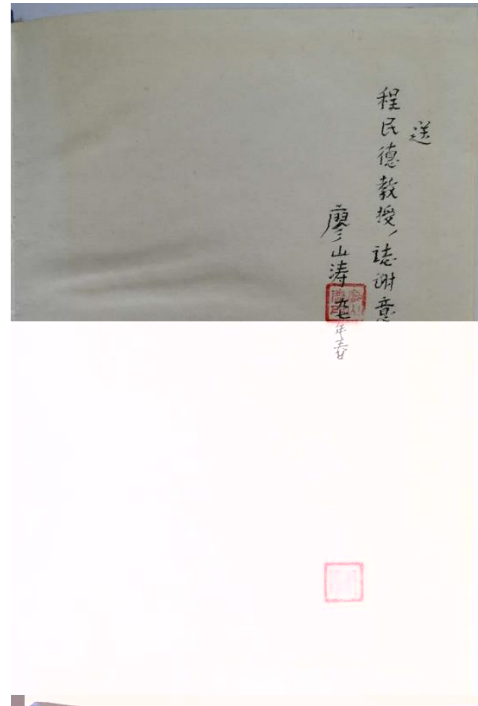 送
程民德教授，誌谢意
廖山涛